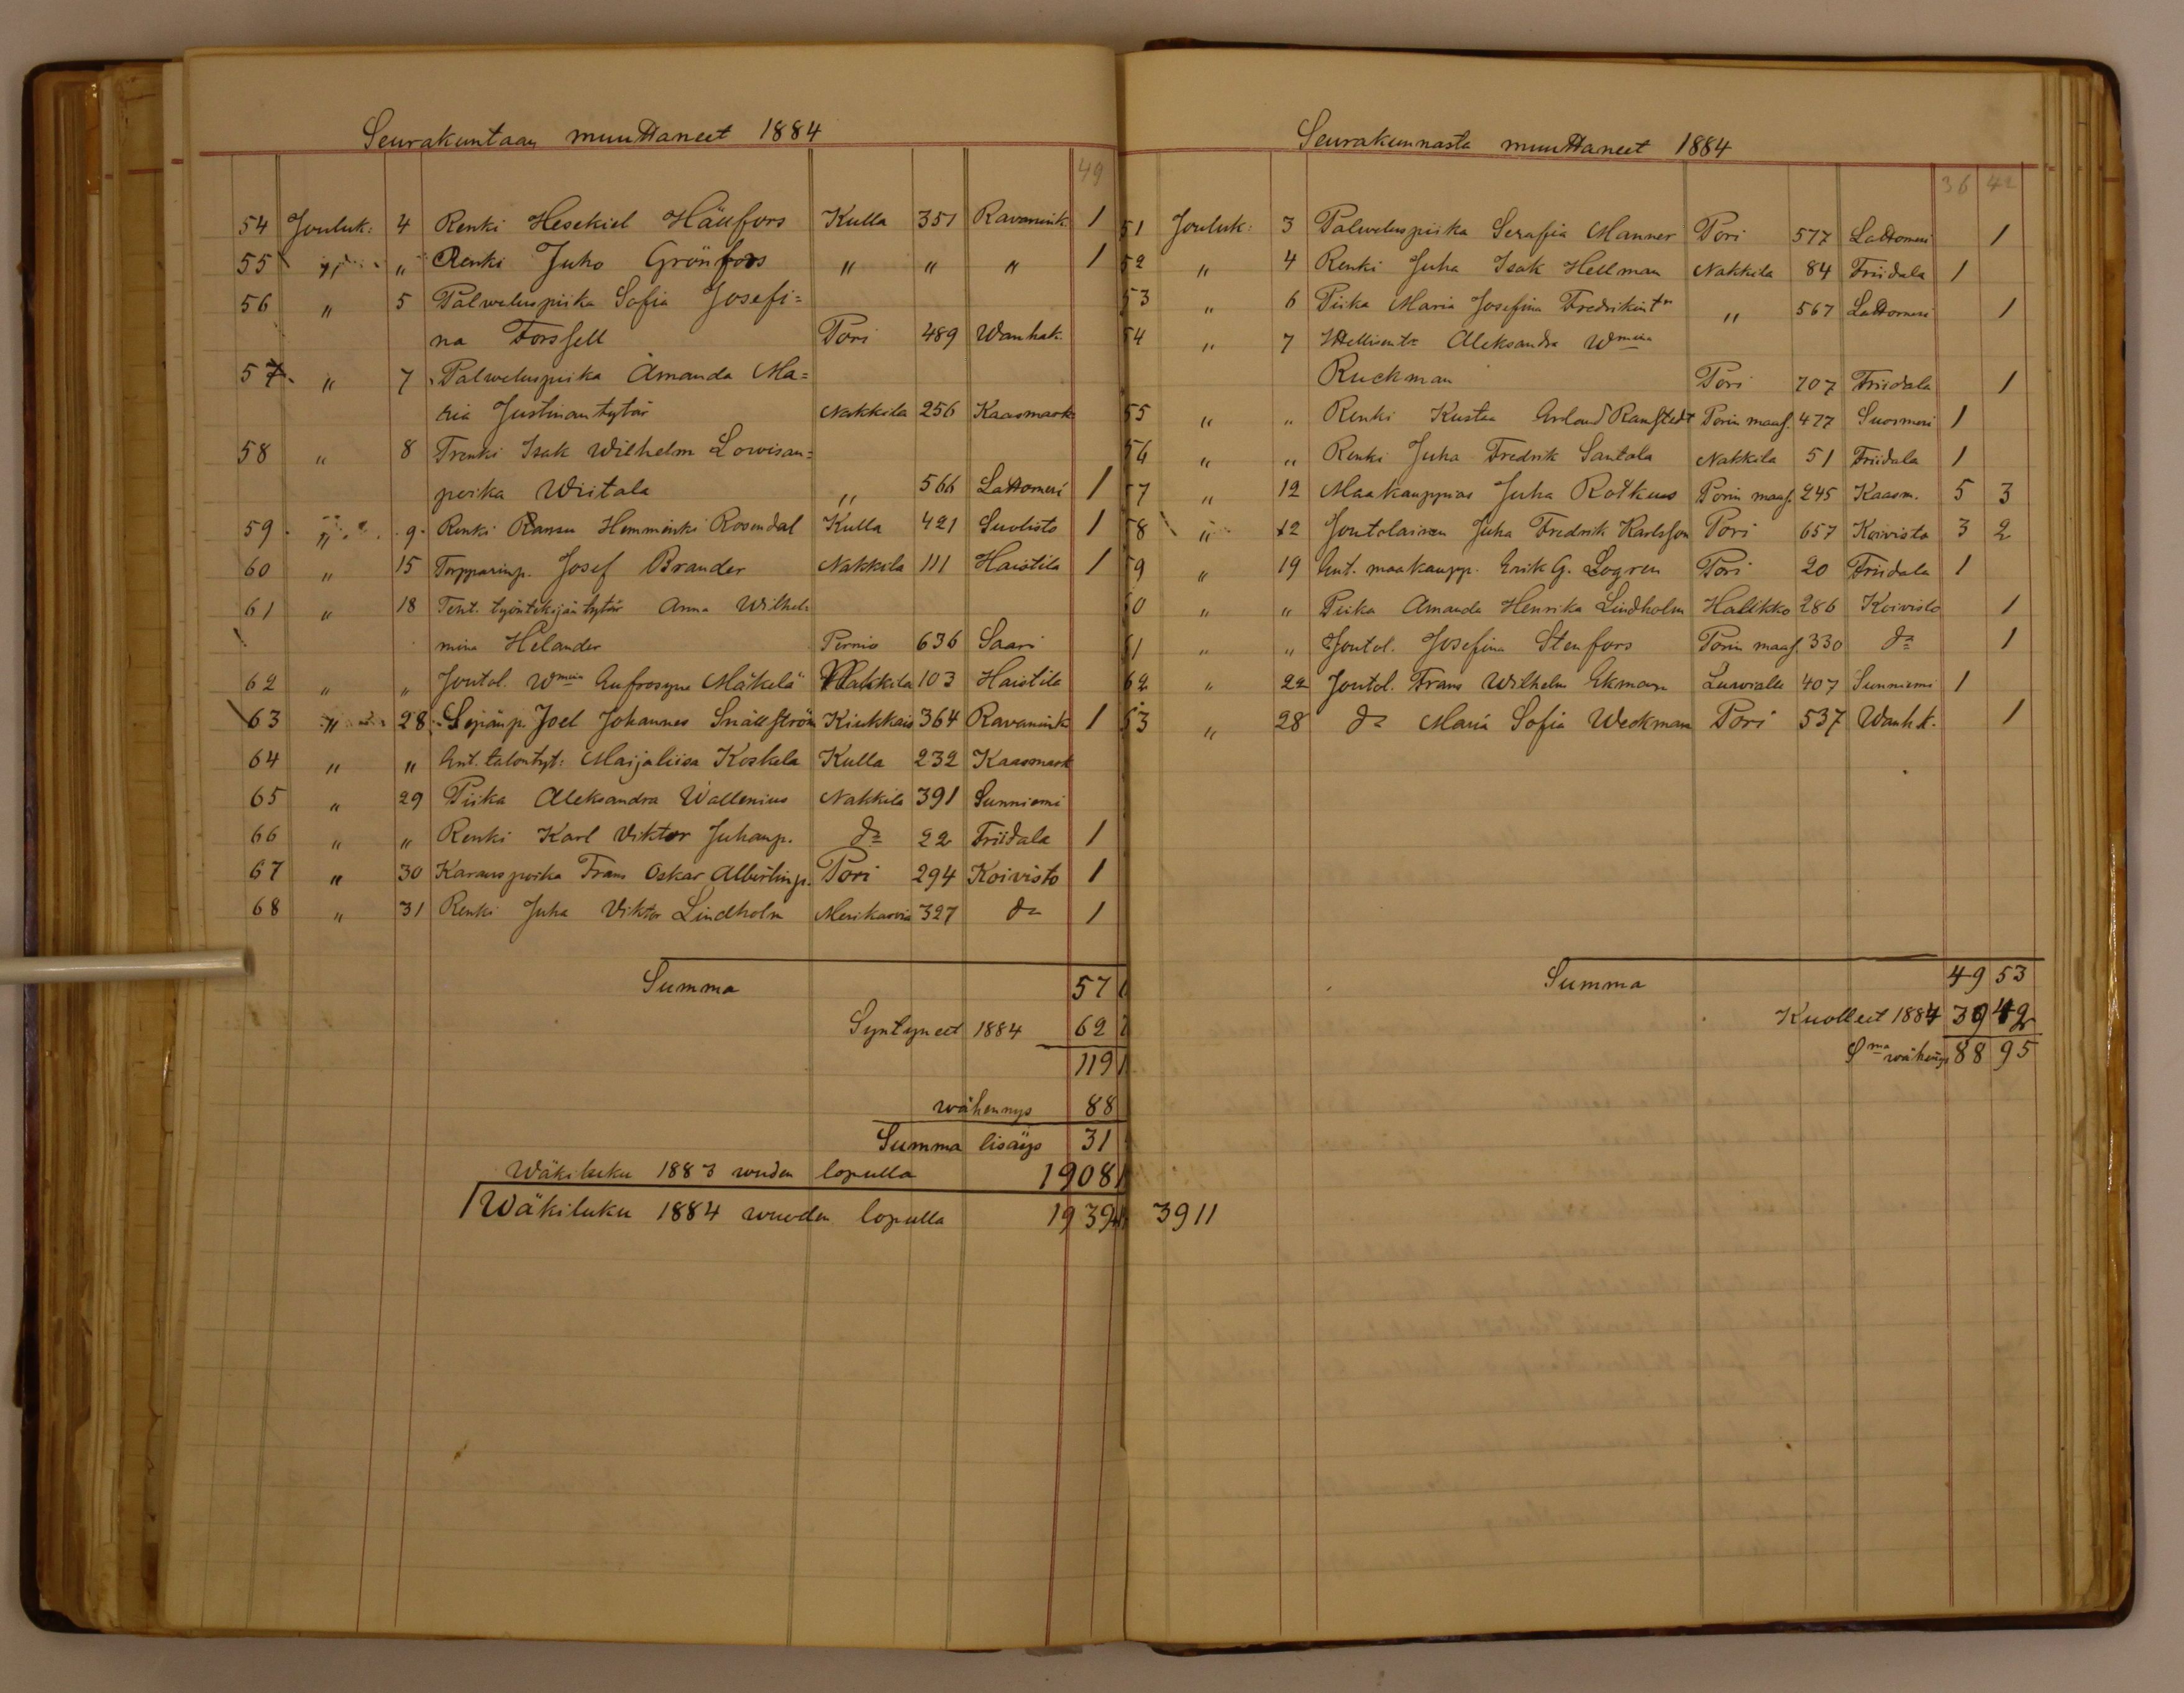 Seurakuntaan muuttaneet 1884
49
54 Jouluk: 4 Renki Hesekiel Hällfors Kulla 351 Ravanink. 1
55 " " Renki Juho Grönfors " " " 1
56 " 5 Palweluspiika Sofia Josefi=
na Forssell Pori 489 Wanhak.
57. " 7 Palweluspiika Amanda Ma=
ria Justinantytär Nakkila 256 Kaasmark
58 " 8 Trenki Isak Wilhelm Lowisan=
poika Wiitala " 566 Lattomeri 1
59 " 9 Renki Ransu Hemminki Rosendal Kulla 421 Suolisto 1
60 " 15 Torpparinp. Josef Brander Nakkila 111 Haistila 1
61 " 18 Tent. työntekijän tytär Anna Wilhel=
mina Helander Perniö 636 Saari
62 " " Joutol. Wmain Eufrosyne Mäkelä Nakkila 103 Haistila
63 " 28 Sepänp. Joel Johannes Snällström Kiukkais 364 Ravanink 1
64 " " Ent. talontyt: Maijaliisa Koskela Kulla 232 Kaasmark
65 " 29 Piika Aleksandra Wallenius Nakkila 391 Sunniemi
66 " " Renki Karl Viktor Juhanp. do 22 Friidala 1
67 " 30 Karauspoika Frans Oskar Albertinp. Pori 294 Koivisto 1
68 " 31 Renki Juha Viktor Lindholm Merikarvia 327 do 1
Summa 57
Syntyneet 1884 62
119
wähennys 88
Summa lisäys 31
Wäkiluku 1883 wuden lopulla 1908
Wäkiluku 1884 wuoden lopulla 1939
Seurakunnasta muuttaneet 1884
36 42
51 Jouluk: 3 Palweluspiika Serafia Manner Pori 577 Lattomeri 1
52 " 4 Renki Juha Isak Hellman Nakkila 84 Friidala 1
53 " 6 Piika Maria Josefina Fredrikintr " 567 Lattomeri 1
54 " 7 Itellisentr Aleksandra Wmiina
Ruckman Pori 707 Friidala 1
55 " " Renki Kustaa Erland Ramstedt Porin maas. 477 Suosmeri 1
56 " " Renki Juha Fredrik Santala Nakkila 51 Friidala 1
57 " 12 Maakauppias Juha Rotkus Porin maas. 245 Kaasm. 5 3
58 " 12 Joutolainen Juha Fredrik Karlsson Pori 657 Koivisto 3 2
59 " 19 Ent. maakaupp. Erik G. Logren Pori 20 Friidala 1
60 " " Piika Amanda Henrika Lindholm Halikko 286 Koivisto 1
61 " " Joutol. Josefina Stenfors Porin maas. 330 do 1
62 " 22 Joutol. Frans Wilhelm Ekman 407 Sunniemi 1
63 " 28 do Maria Sofia Weckman Pori 537 Wanh.k. 1
Summa 49 53
Kuolleet 1884 39 42
Sma wähenys 88 95
3911